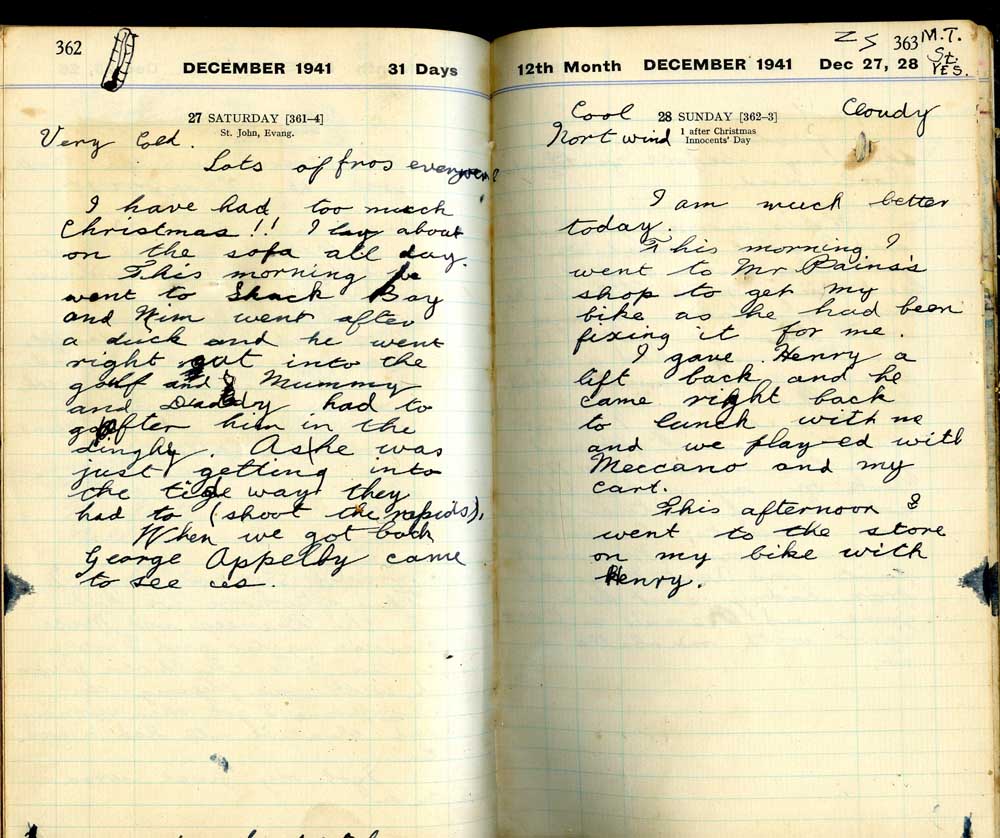 362
DECEMBER 1941 31 Days
27 SATURDAY [361–4]
St. John, Evang.
Very Cold.
Lots of fros
I have had too much
Christmas !! I lay about
on the sofa all day.
This morning we
went to Shack Bay
and Nim went after
a duck and he went
right out into the
golf and Mummy
and Daddy had to
go after him in the
dinghy. As he was
just getting into
the tide way they
had to (shoot the rapids).
When we got back
George Appelby came
to see us.
Z S 363 M.T.
St.
YES.
12th Month DECEMBER 1941 Dec 27, 28
Cool 28 SUNDAY [362–3] Cloudy
Nort wind 1 after Christmas
Innocents' Day
I am much better
today.
This morning I
went to Mr Pains's
shop to get my
bike as he had been
fixing it for me.
I gave Henry a
lift back and he
came right back
to lunch with me
and we played with
Meccano and my
cart.
This afternoon I
went to the store
on my bike with
Henry.